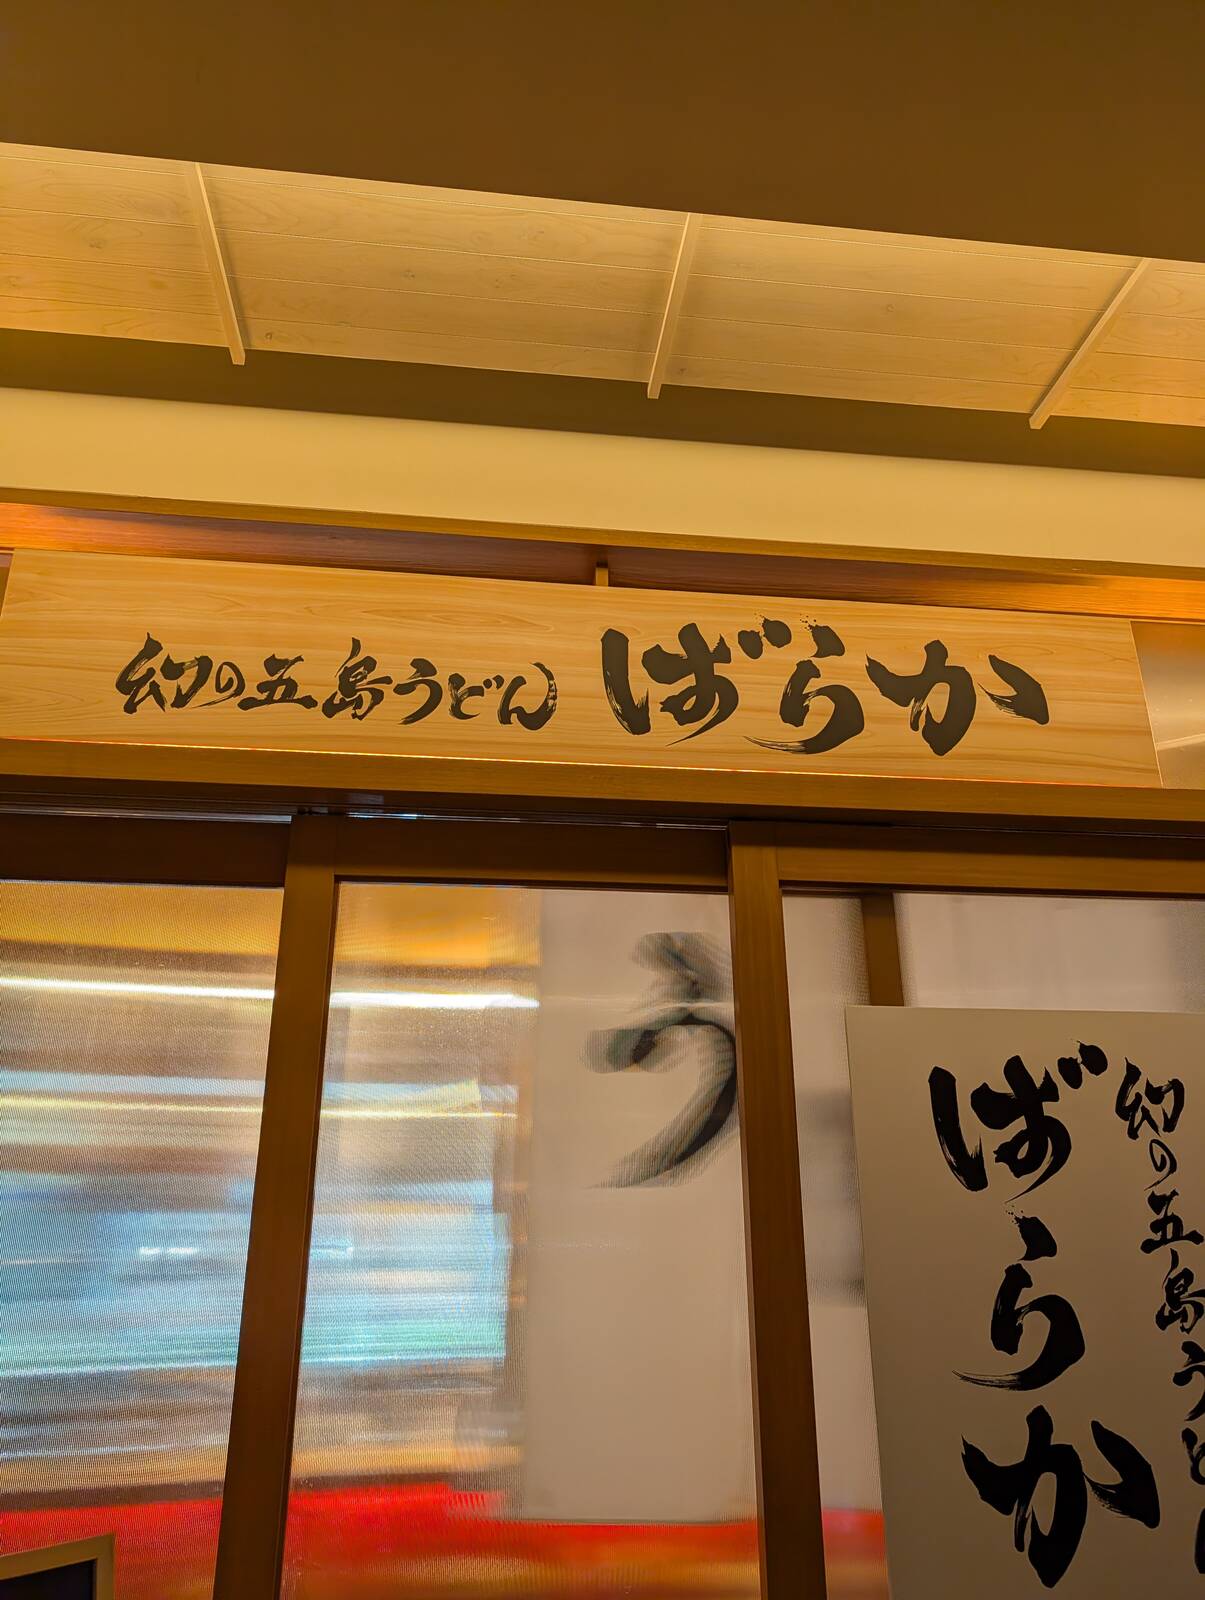 幻の五島うどん ばらか
う
幻の五島うど
ばらか